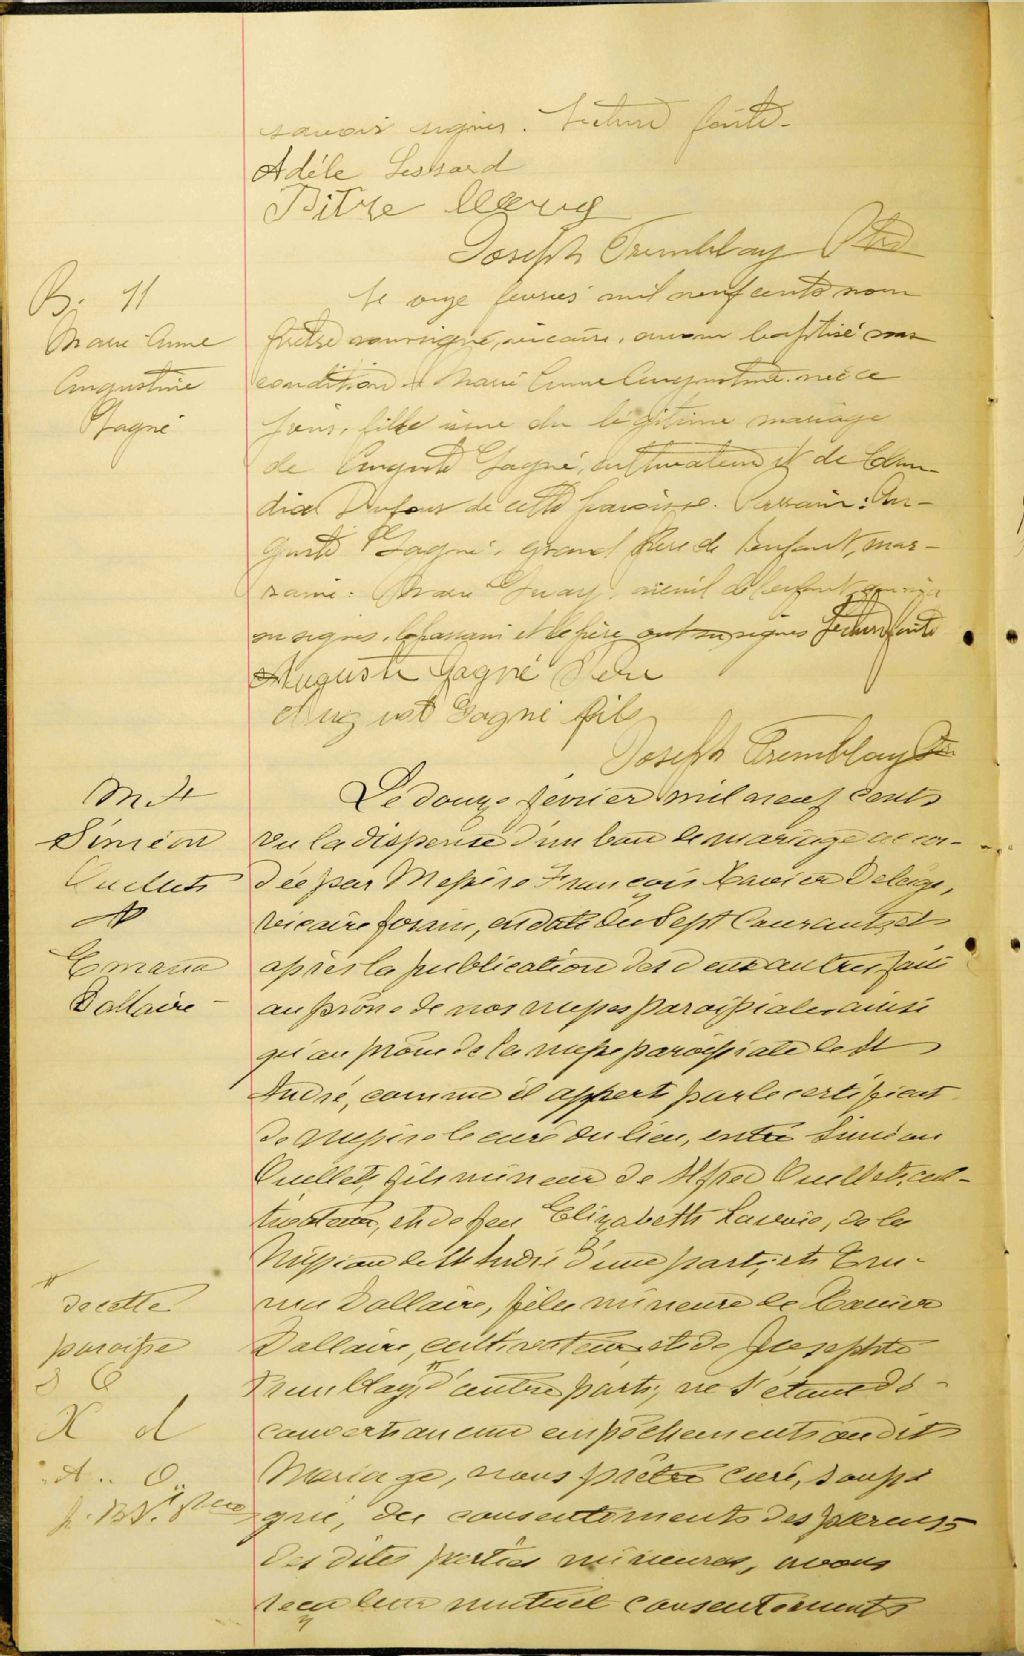 savoir signer. Lecture faite.
Adèle Lessard
Pitre
Joseph Tremblay Ptre
B. 11
Marie Anne
Augustine
Gagné
Le onze février mil neuf cents nous
prêtre soussigné, vicaire, avons baptisé sous
condition Marie Anne Augustine née ce
jour, fille issue du légitime mariage
de Auguste Gagné, cultivateur et de Clau-
dia Dufour de cette paroisse. Parrain: Au-
guste Gagné, grand père de l'enfant, mar-
raine Guay, aieule de l'enfant
signer. le parrain et le père ont su signer Lecture faite
Auguste Gagné Père
August Gagné fils
Joseph Tremblay Ptre
M 4
Siméon
Ouellets
&
Emana
Dallaire
Le douze février mil neuf cents
vu la dispense d'un ban de mariage accor-
dée par Messire François Xavier Delage,
vicaire forain, en date du sept courant, et
après la publication des deux autres faite
au prône de nos messes paroissiales ainsi
qu'au prône de la messe paroissiale de St
André, comme il appert par le certificat
de Messire le curé du lieu, entre Siméon
Ouellet, fils mineur de Alfred Ouellet, cul-
tivateur, et de feu Elizabeth Lavoie, de la
Mission de St André d'une part, et Em-
ma Dallaire, fille mineure de Xavier
Dallaire, cultivateur, et de Josephte
Tremblay, # d'autre part, ne s'étant dé-
couvert aucun empêchement au dit
Mariage, nous prêtre curé, soussi
gné, du consentement des parents
des dites parties mineures, avons
reçu leur mutuel consentement
# de cette
paroisse
S O
X d
A.. O..